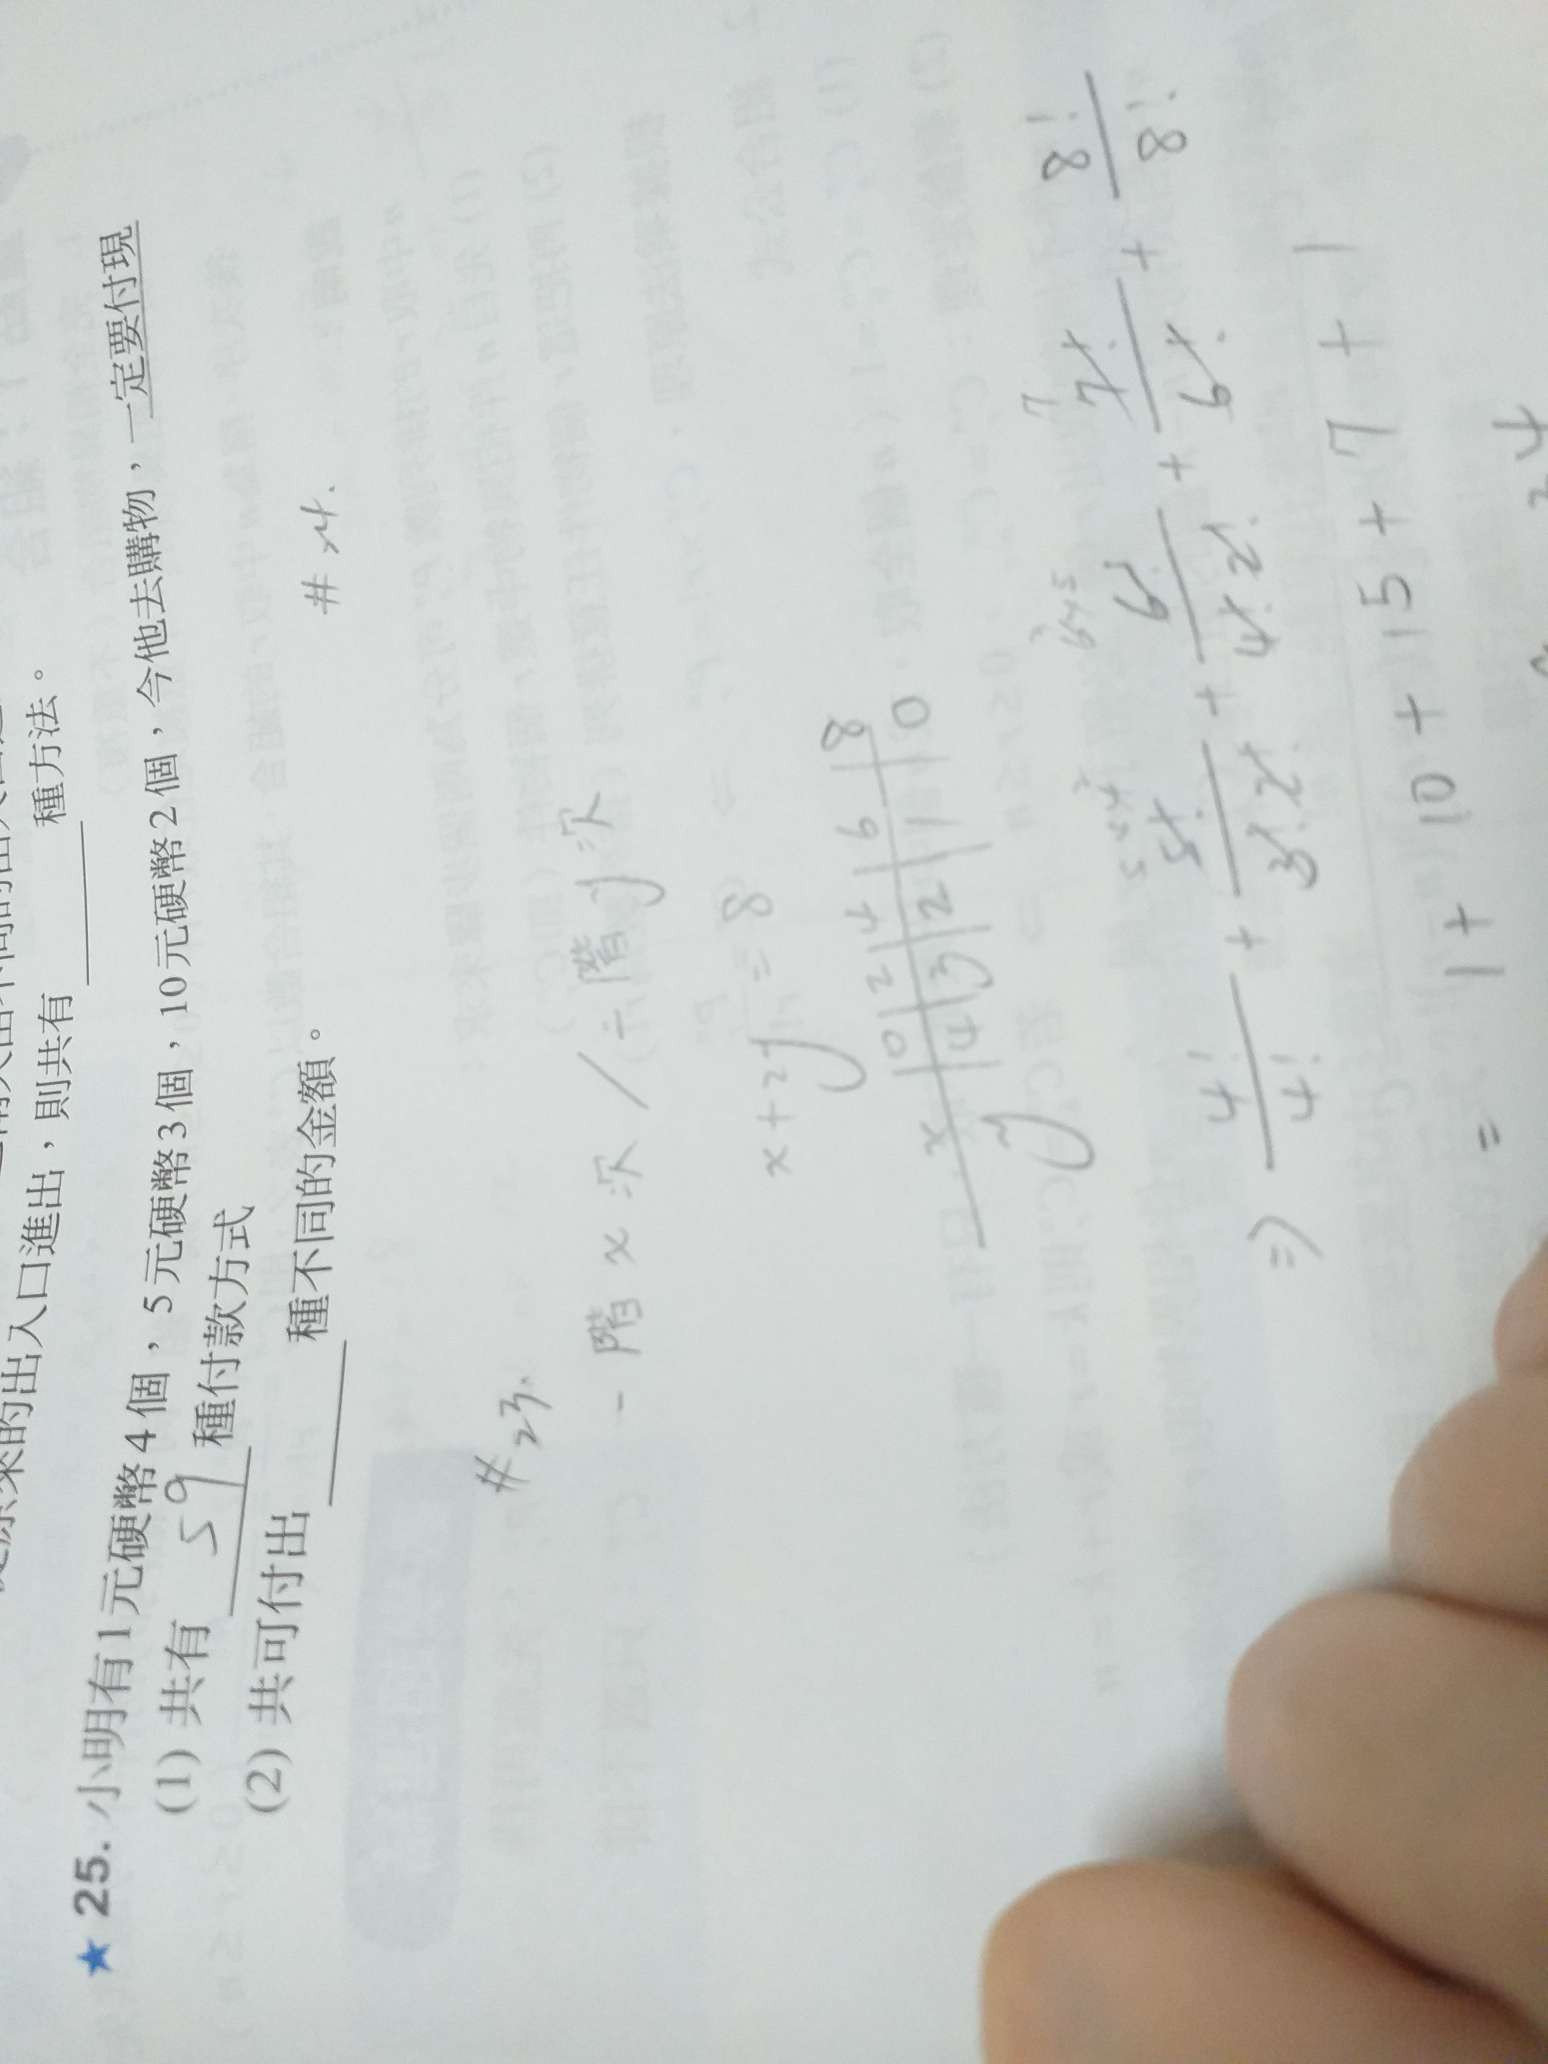 從原來的出入口進出，則共有______種方法。
★ 25. 小明有1元硬幣4個，5元硬幣3個，10元硬幣2個，今他去購物，一定要付現
(1) 共有 59 種付款方式
(2) 共可付出______種不同的金額。
# 24.
# 23.
一階 x 次 / 二階 y 次
x + 2y = 8
x | 0 | 2 | 4 | 6 | 8
y | 4 | 3 | 2 | 1 | 0
⇒ 4!/4! + 5!/3!2! + 6!/4!2! + 7!/6! + 8!/8!
= 1 + 10 + 15 + 7 + 1